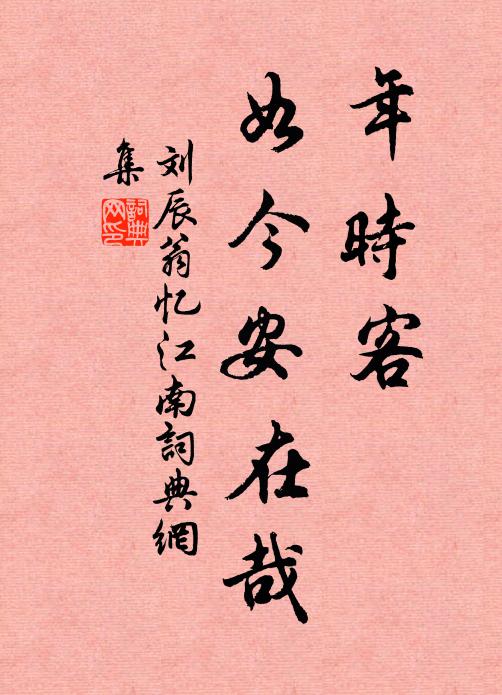 年時客
如今安在哉
刘辰翁忆江南詞典網
集
詞典
网印